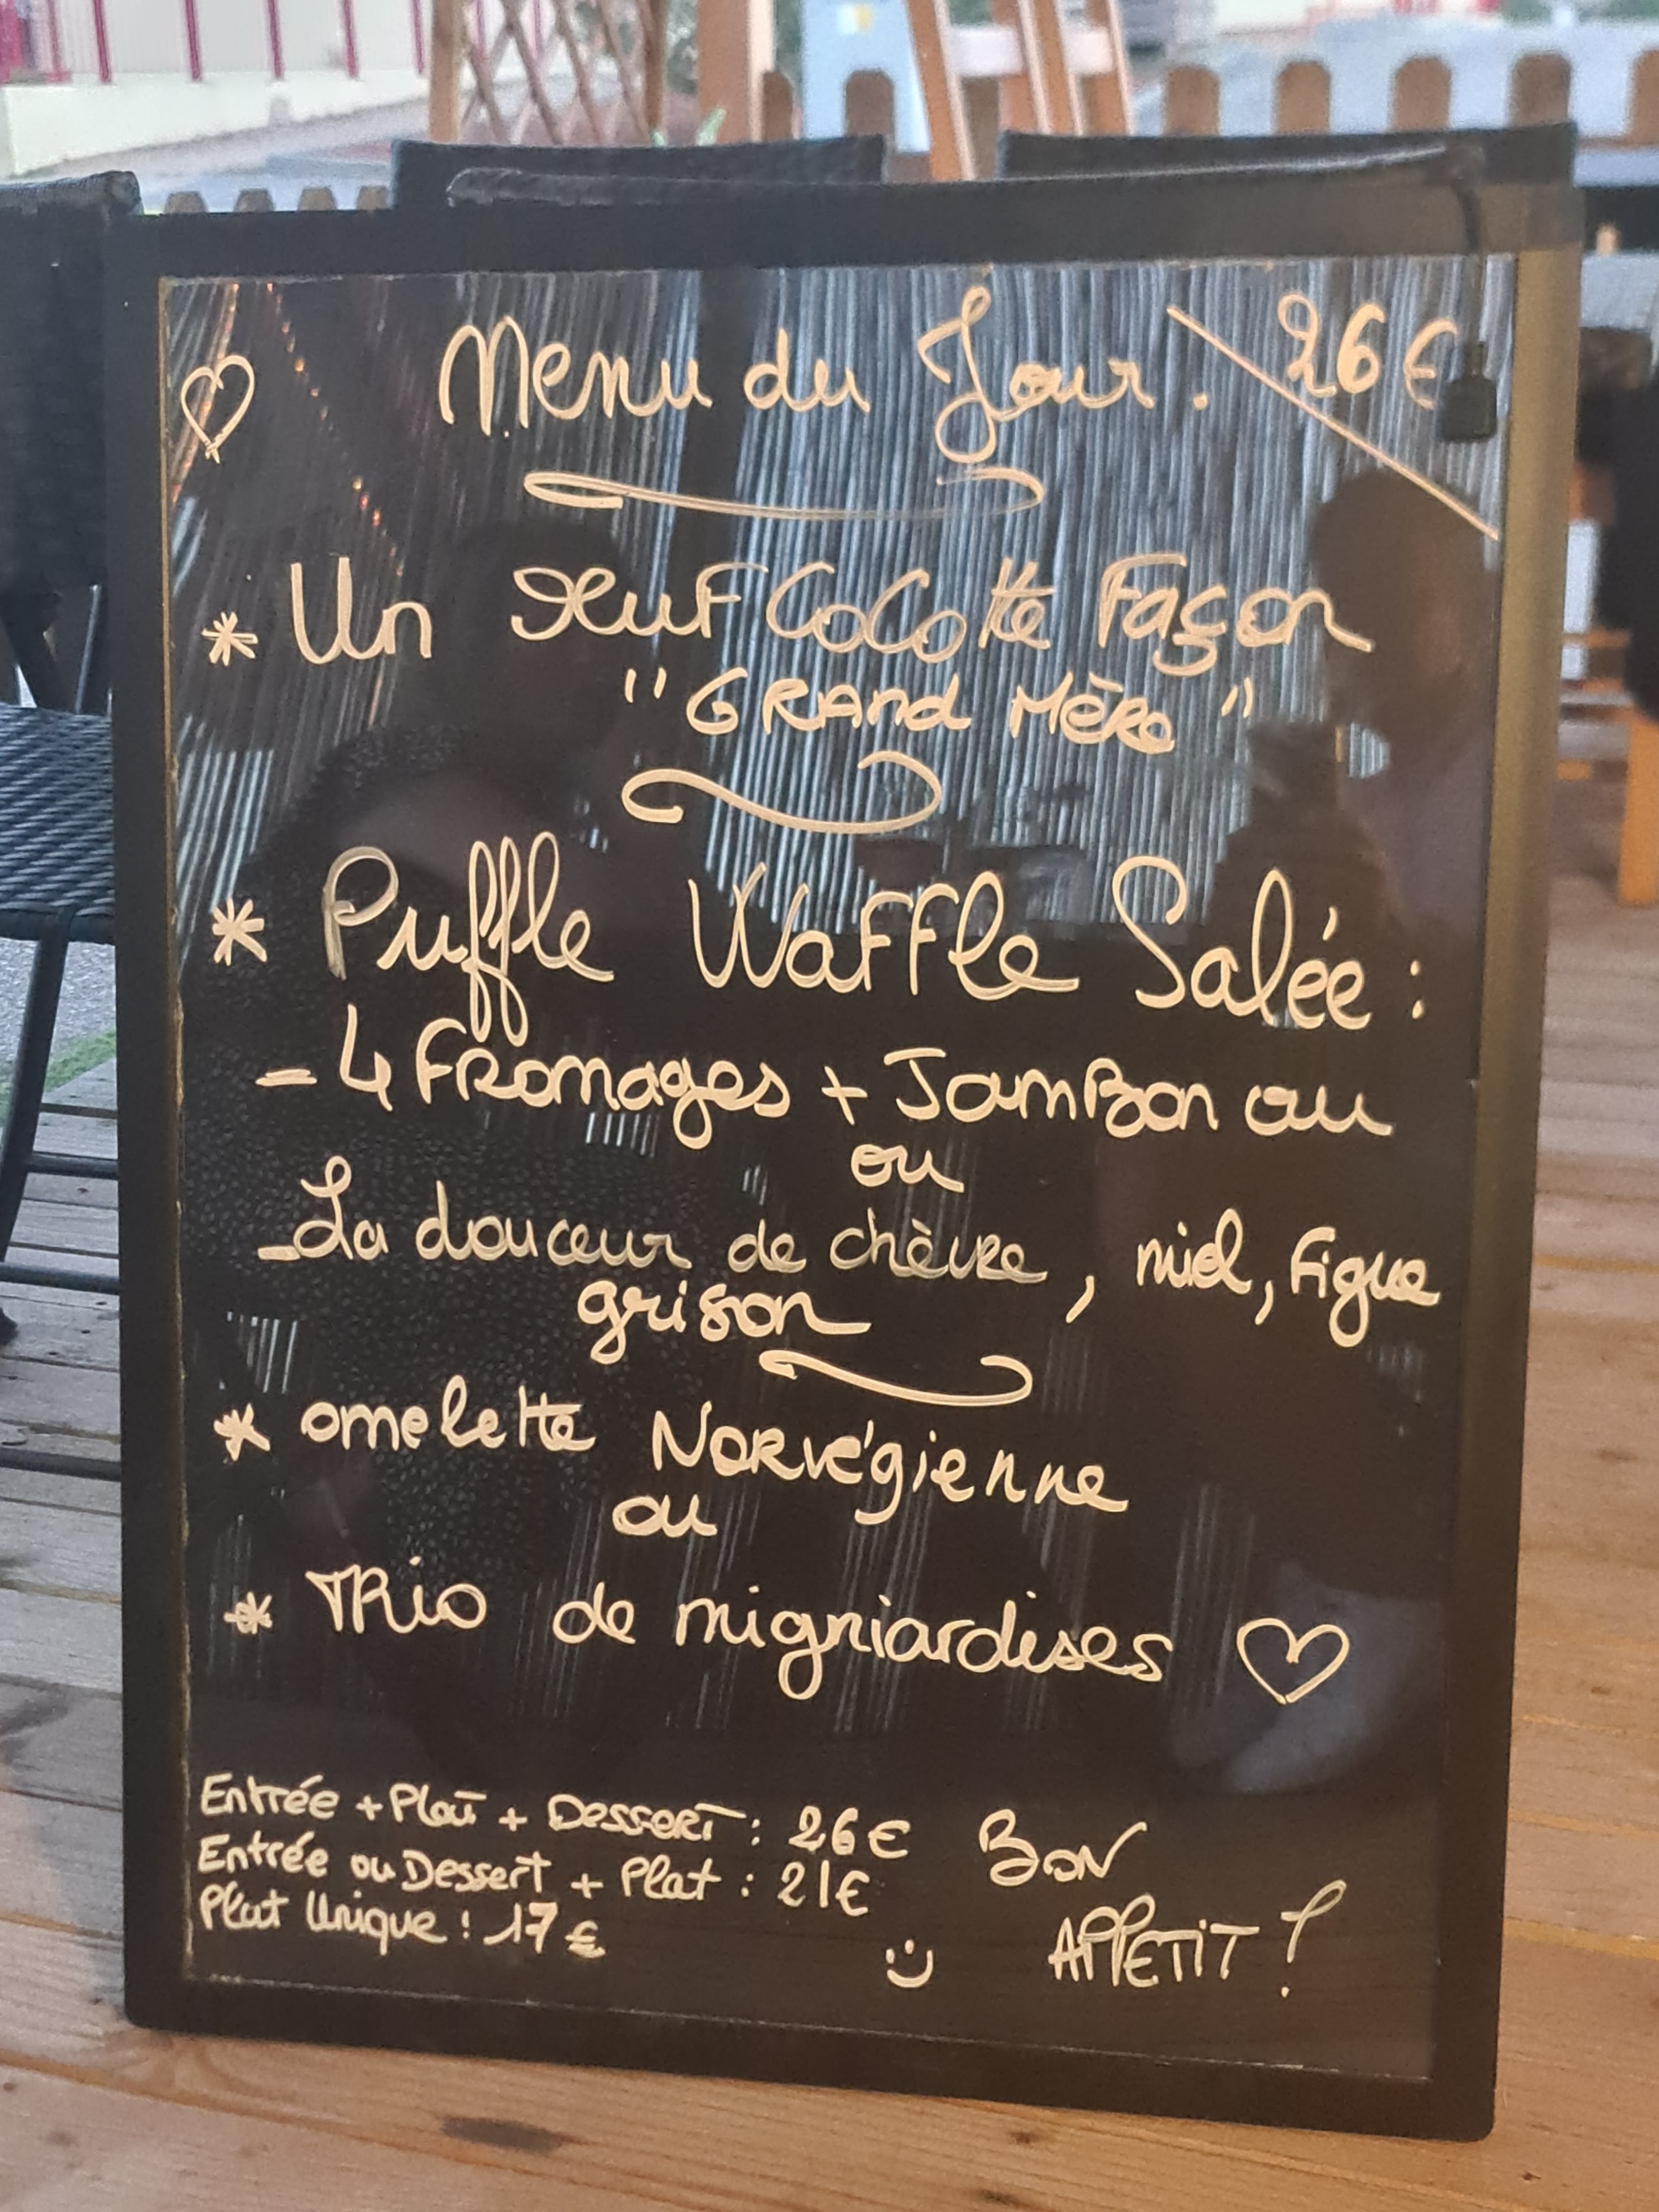 Menu du Jour. 26€
* Un Oeuf Cocotte Façon
"Grand Mère"
* Puffle Waffle Salée :
- 4 Fromages + Jambon ou
ou
- La douceur de chèvre, miel, figue
grison
* omelette Norvégienne
ou
* Trio de migniardises
Entrée + Plat + Dessert : 26€
Entrée ou Dessert + Plat : 21€
Plat Unique : 17€
Bon
Appetit !